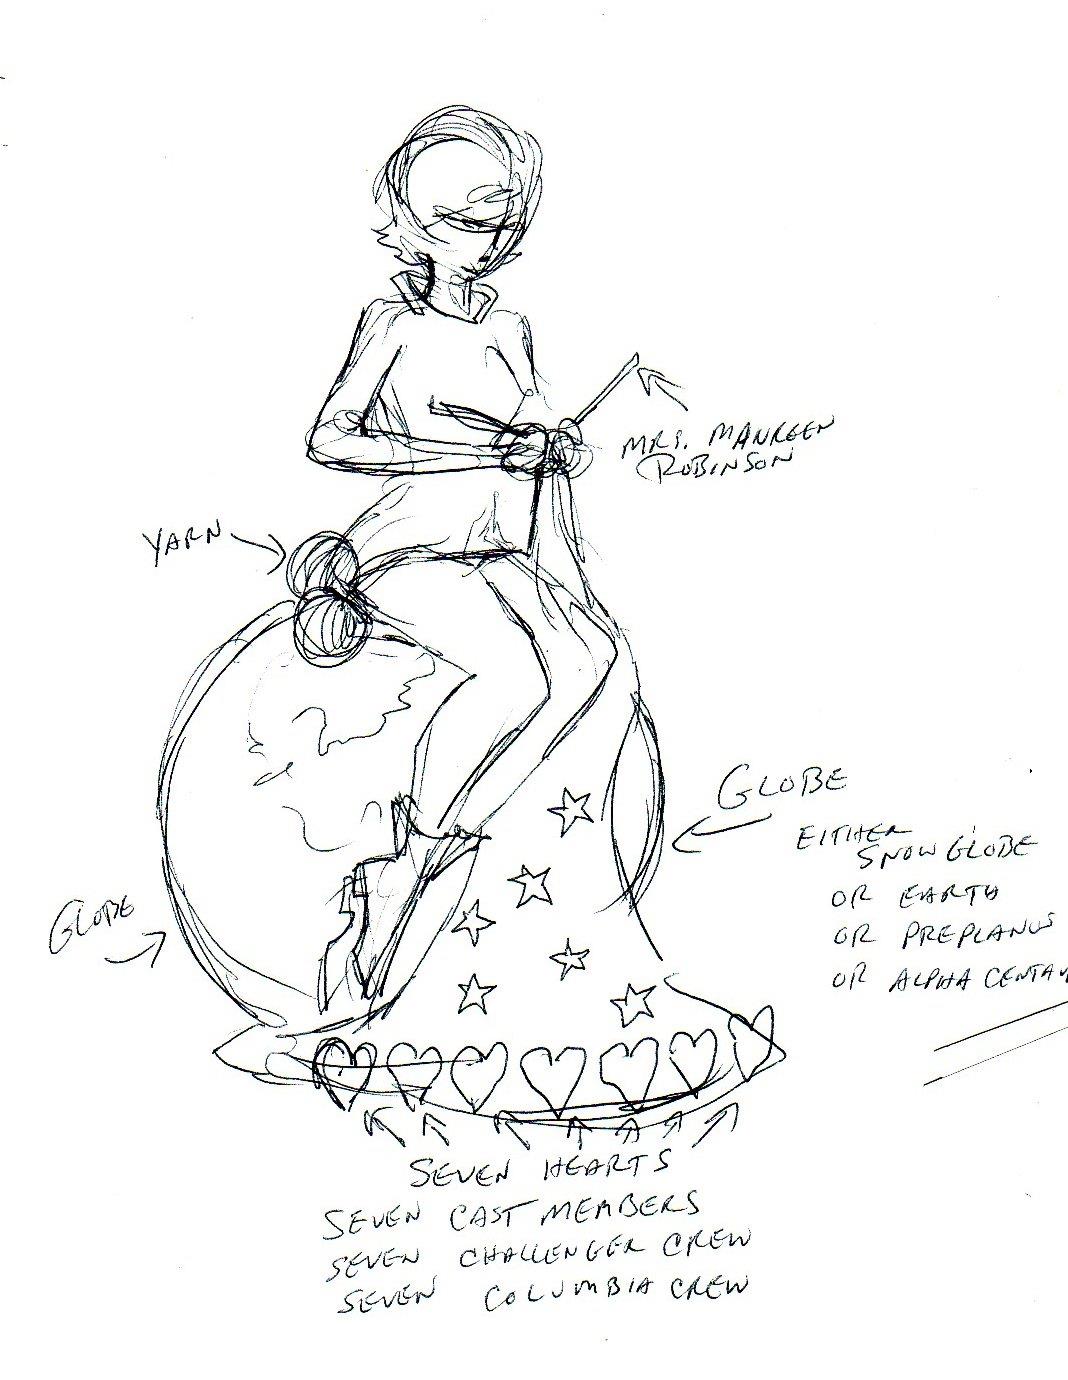 MRS. MAUREEN
ROBINSON
YARN
GLOBE
EITHER
SNOW GLOBE
OR EARTH
OR PREPLANUS
OR ALPHA CENTAU
GLOBE
SEVEN HEARTS
SEVEN CAST MEMBERS
SEVEN CHALLENGER CREW
SEVEN COLUMBIA CREW